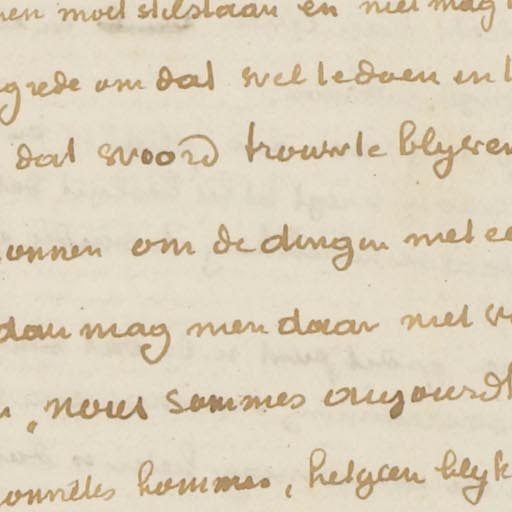 men moet stilstaan en niet mag
grede om dat wel te doen en
dat woord trouw te blyven
onnen om de dingen met ee
dan mag men daar niet v
nous sommes aujourd
onnêtes hommes, hetgeen blyk